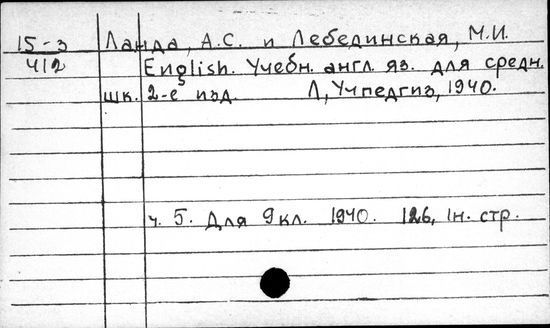 15-3 Ланда, А.С. и Лебединская, М.И.
412 English. Учебн. англ. яз. для средн.
шк. 2-е изд. Л, Учпедгиз, 1940.
ч. 5. Для 9 кл. 1940. 126, 1н. стр.